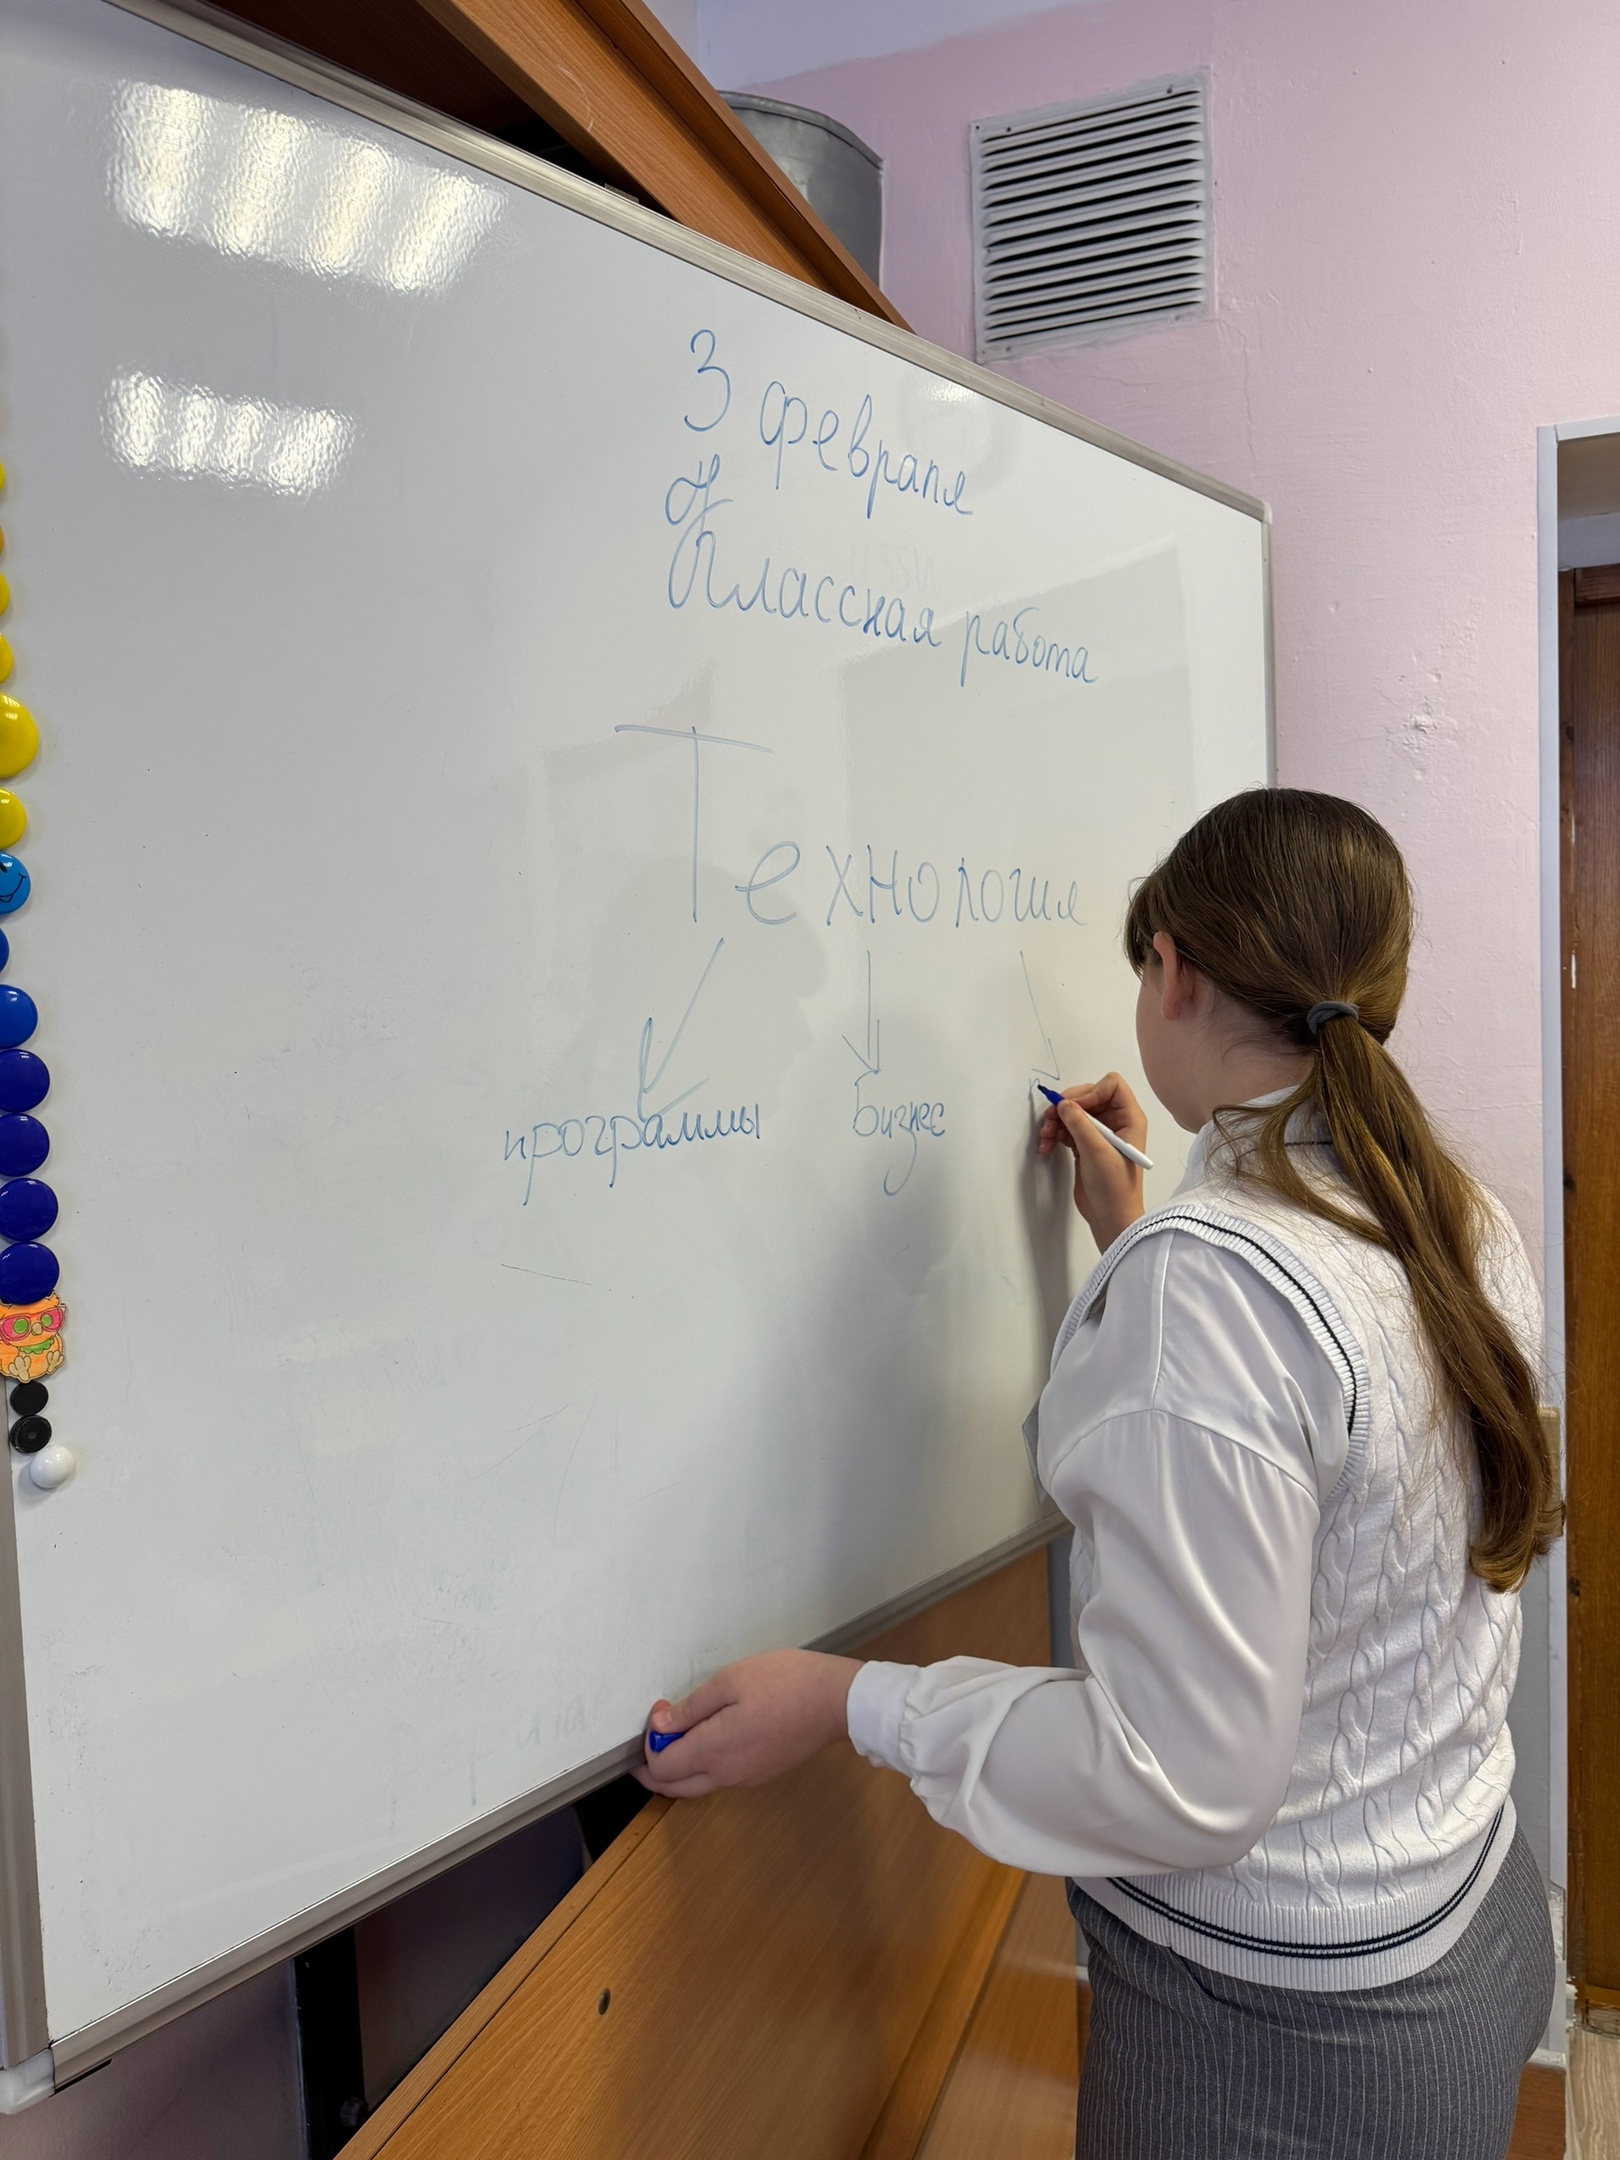 3 февраля
Классная работа
Технология
программы бизнес